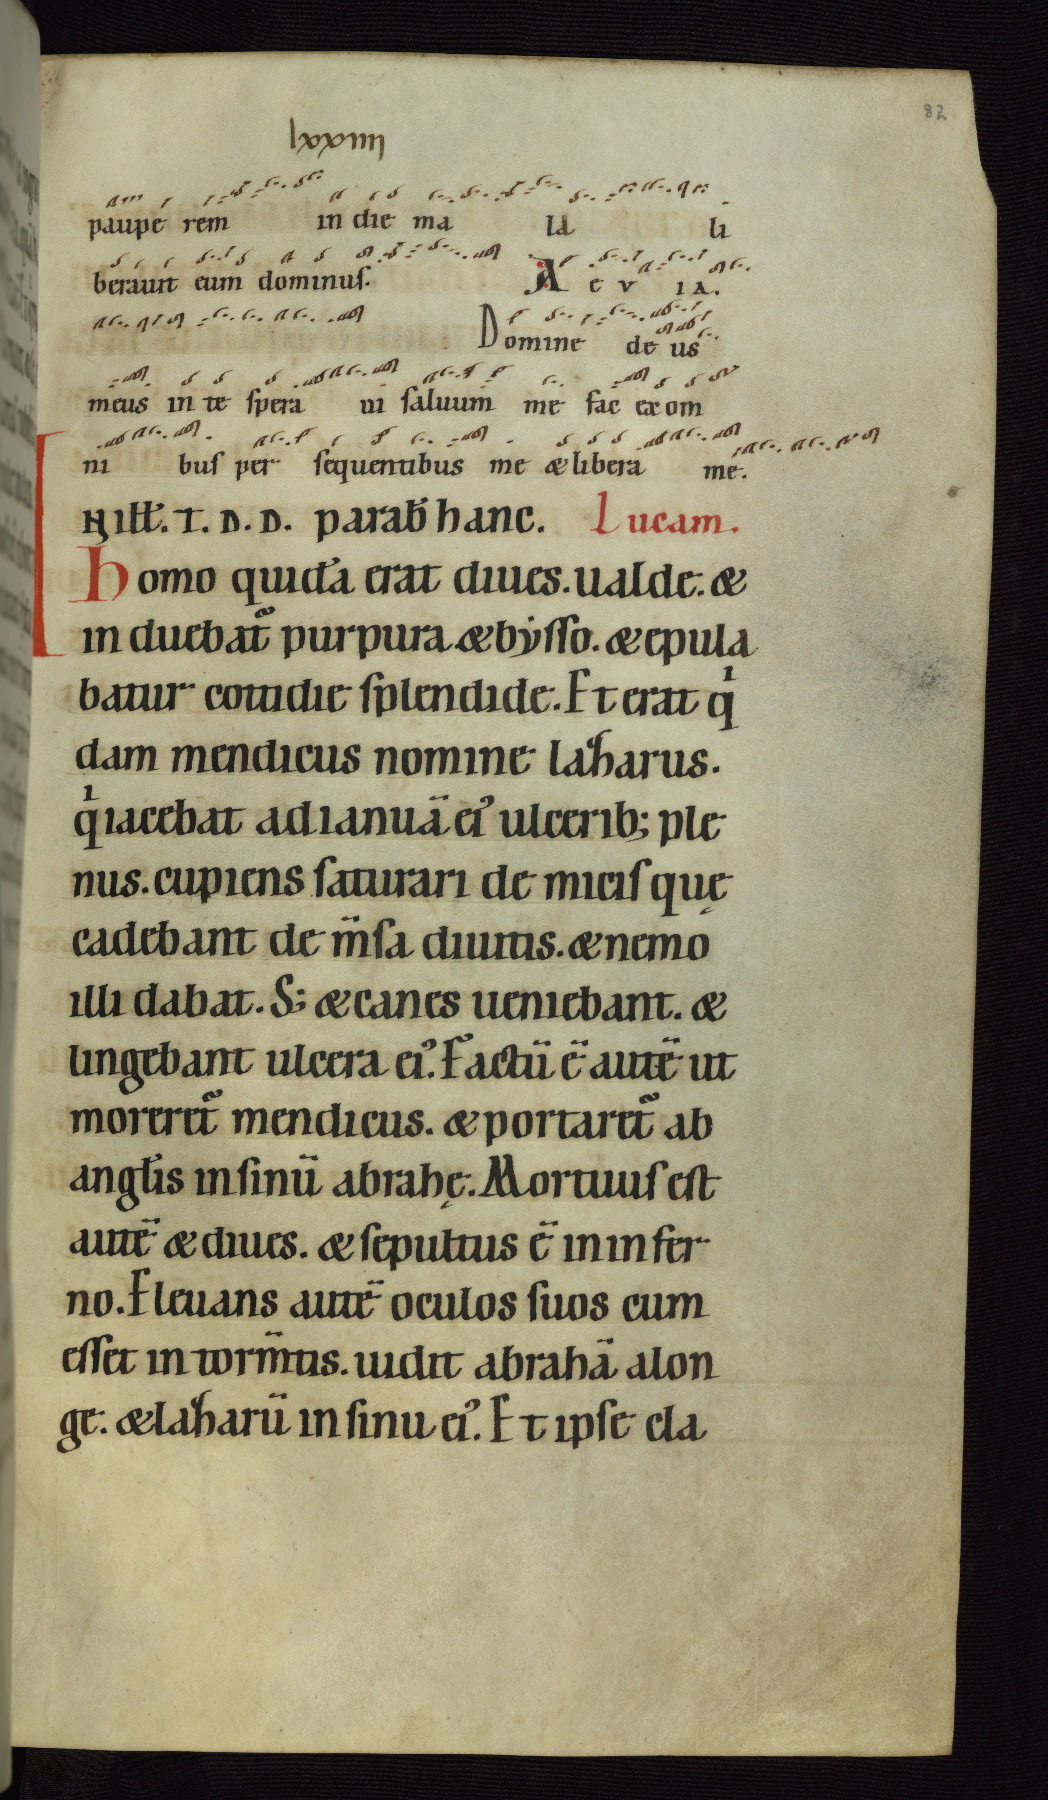 82
lxxiiii
paupe rem in die ma la li
berauit eum dominuſ. A E V I A.
Domine de us
meus in te ſpera ui ſaluum me fac ex om
ni buſ per ſequentibus me & libera me.
N ILLƗ. T. D. D. parab̄ hanc. Lucam.
Homo quidā erat diues. ualde. &
induebat̄ purpura & bẏſſo. & epula
batur cotidie ſplendide. Et erat qͥ
dam mendicus nomine lazarus.
qͥ iacebat ad ianuā ei᾽ ulcerib; ple
nus. cupiens ſaturari de miciſ quę
cadebant de m̄ſa diuitis. & nemo
illi dabat. S; & canes ueniebant. &
lingebant ulcera ei᾽. Factū ē autē ut
moreret̄ mendicus. & portaret̄ ab
angƚis in ſinū abrahę. Mortuuſ eſt
autē & diues. & ſepultus ē in infer
no. Eleuans autē oculos ſuos cum
eſſet in torm̄tis. uidit abrahā alon
ge. & lazarū in ſinu ei᾽. Et ipſe cla